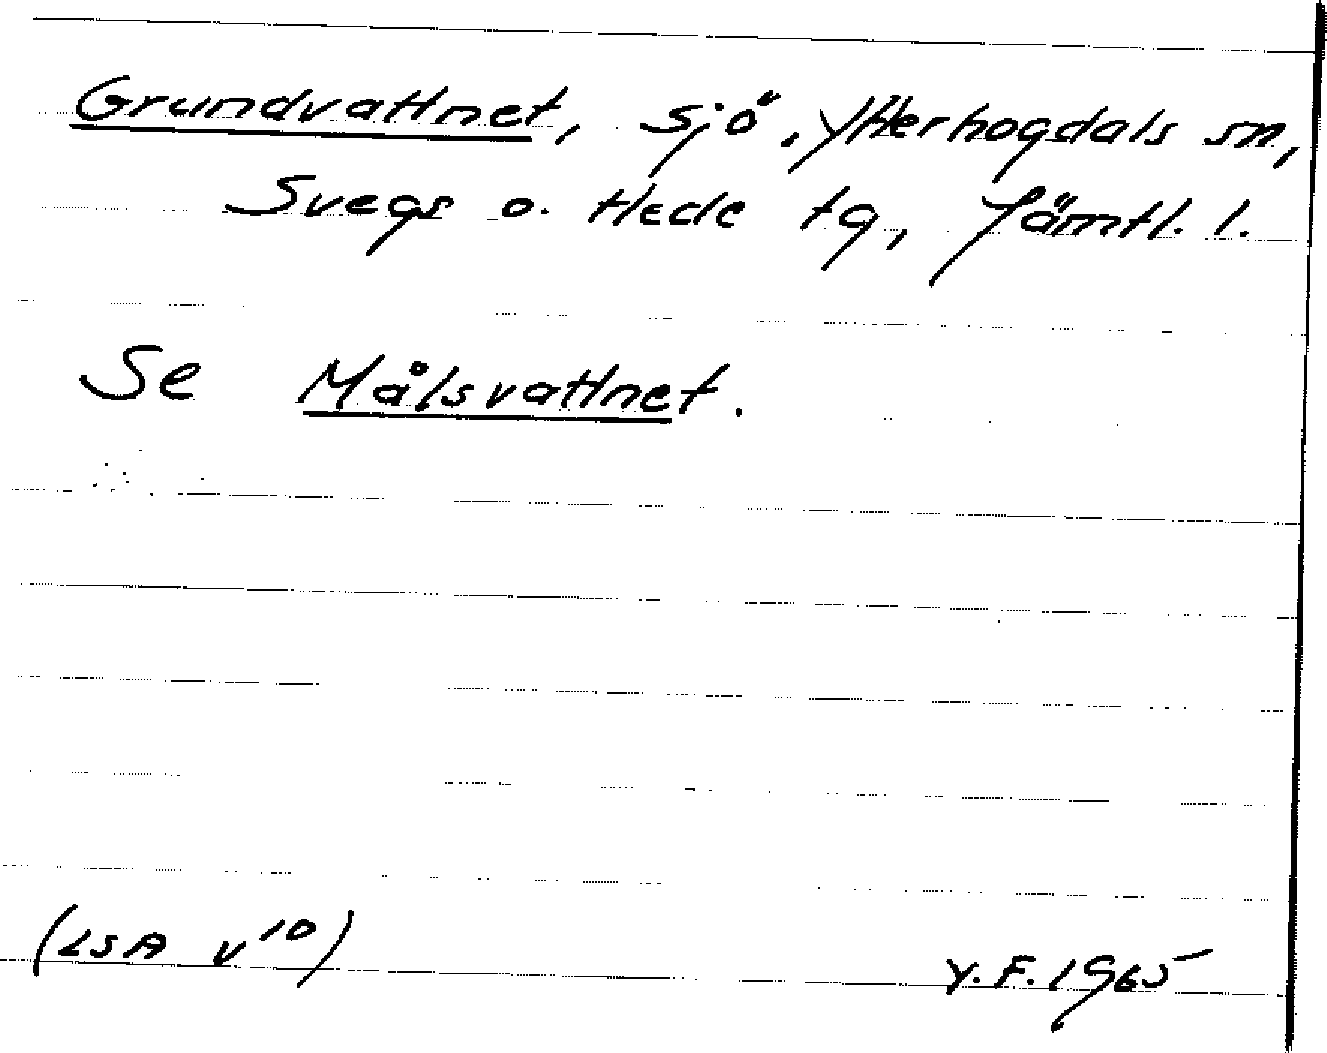 Grundvattnet, sjö, Ytterhogdals sn,
Svegs o. Hede tg, Jämtl. l.
Se Målsvattnet.
(LSA V¹⁰)
Y.F. 1965